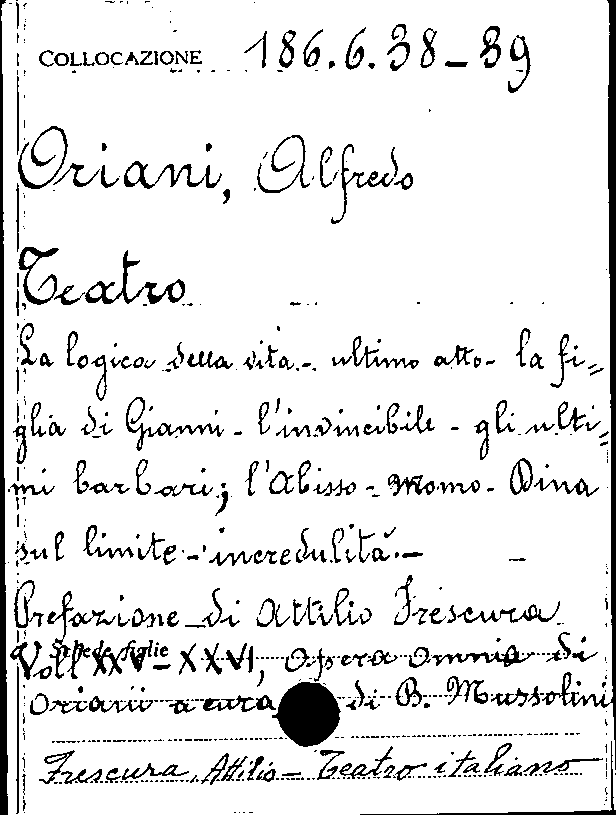 COLLOCAZIONE 186.6.38-39
Oriani, Alfredo
Teatro
La logica della vita - ultimo atto - la fi=
glia di Gianni - l'invincibile - gli ulti=
mi barbari; l'Abisso - Momo - Dina
sul limite - incredulità. -
Prefazione di Attilio Frescura
Schede figlie
Voll XXV-XXVI, Opera Omnia di
Oriani a cura di B. Mussolini
Frescura, Attilio - Teatro italiano